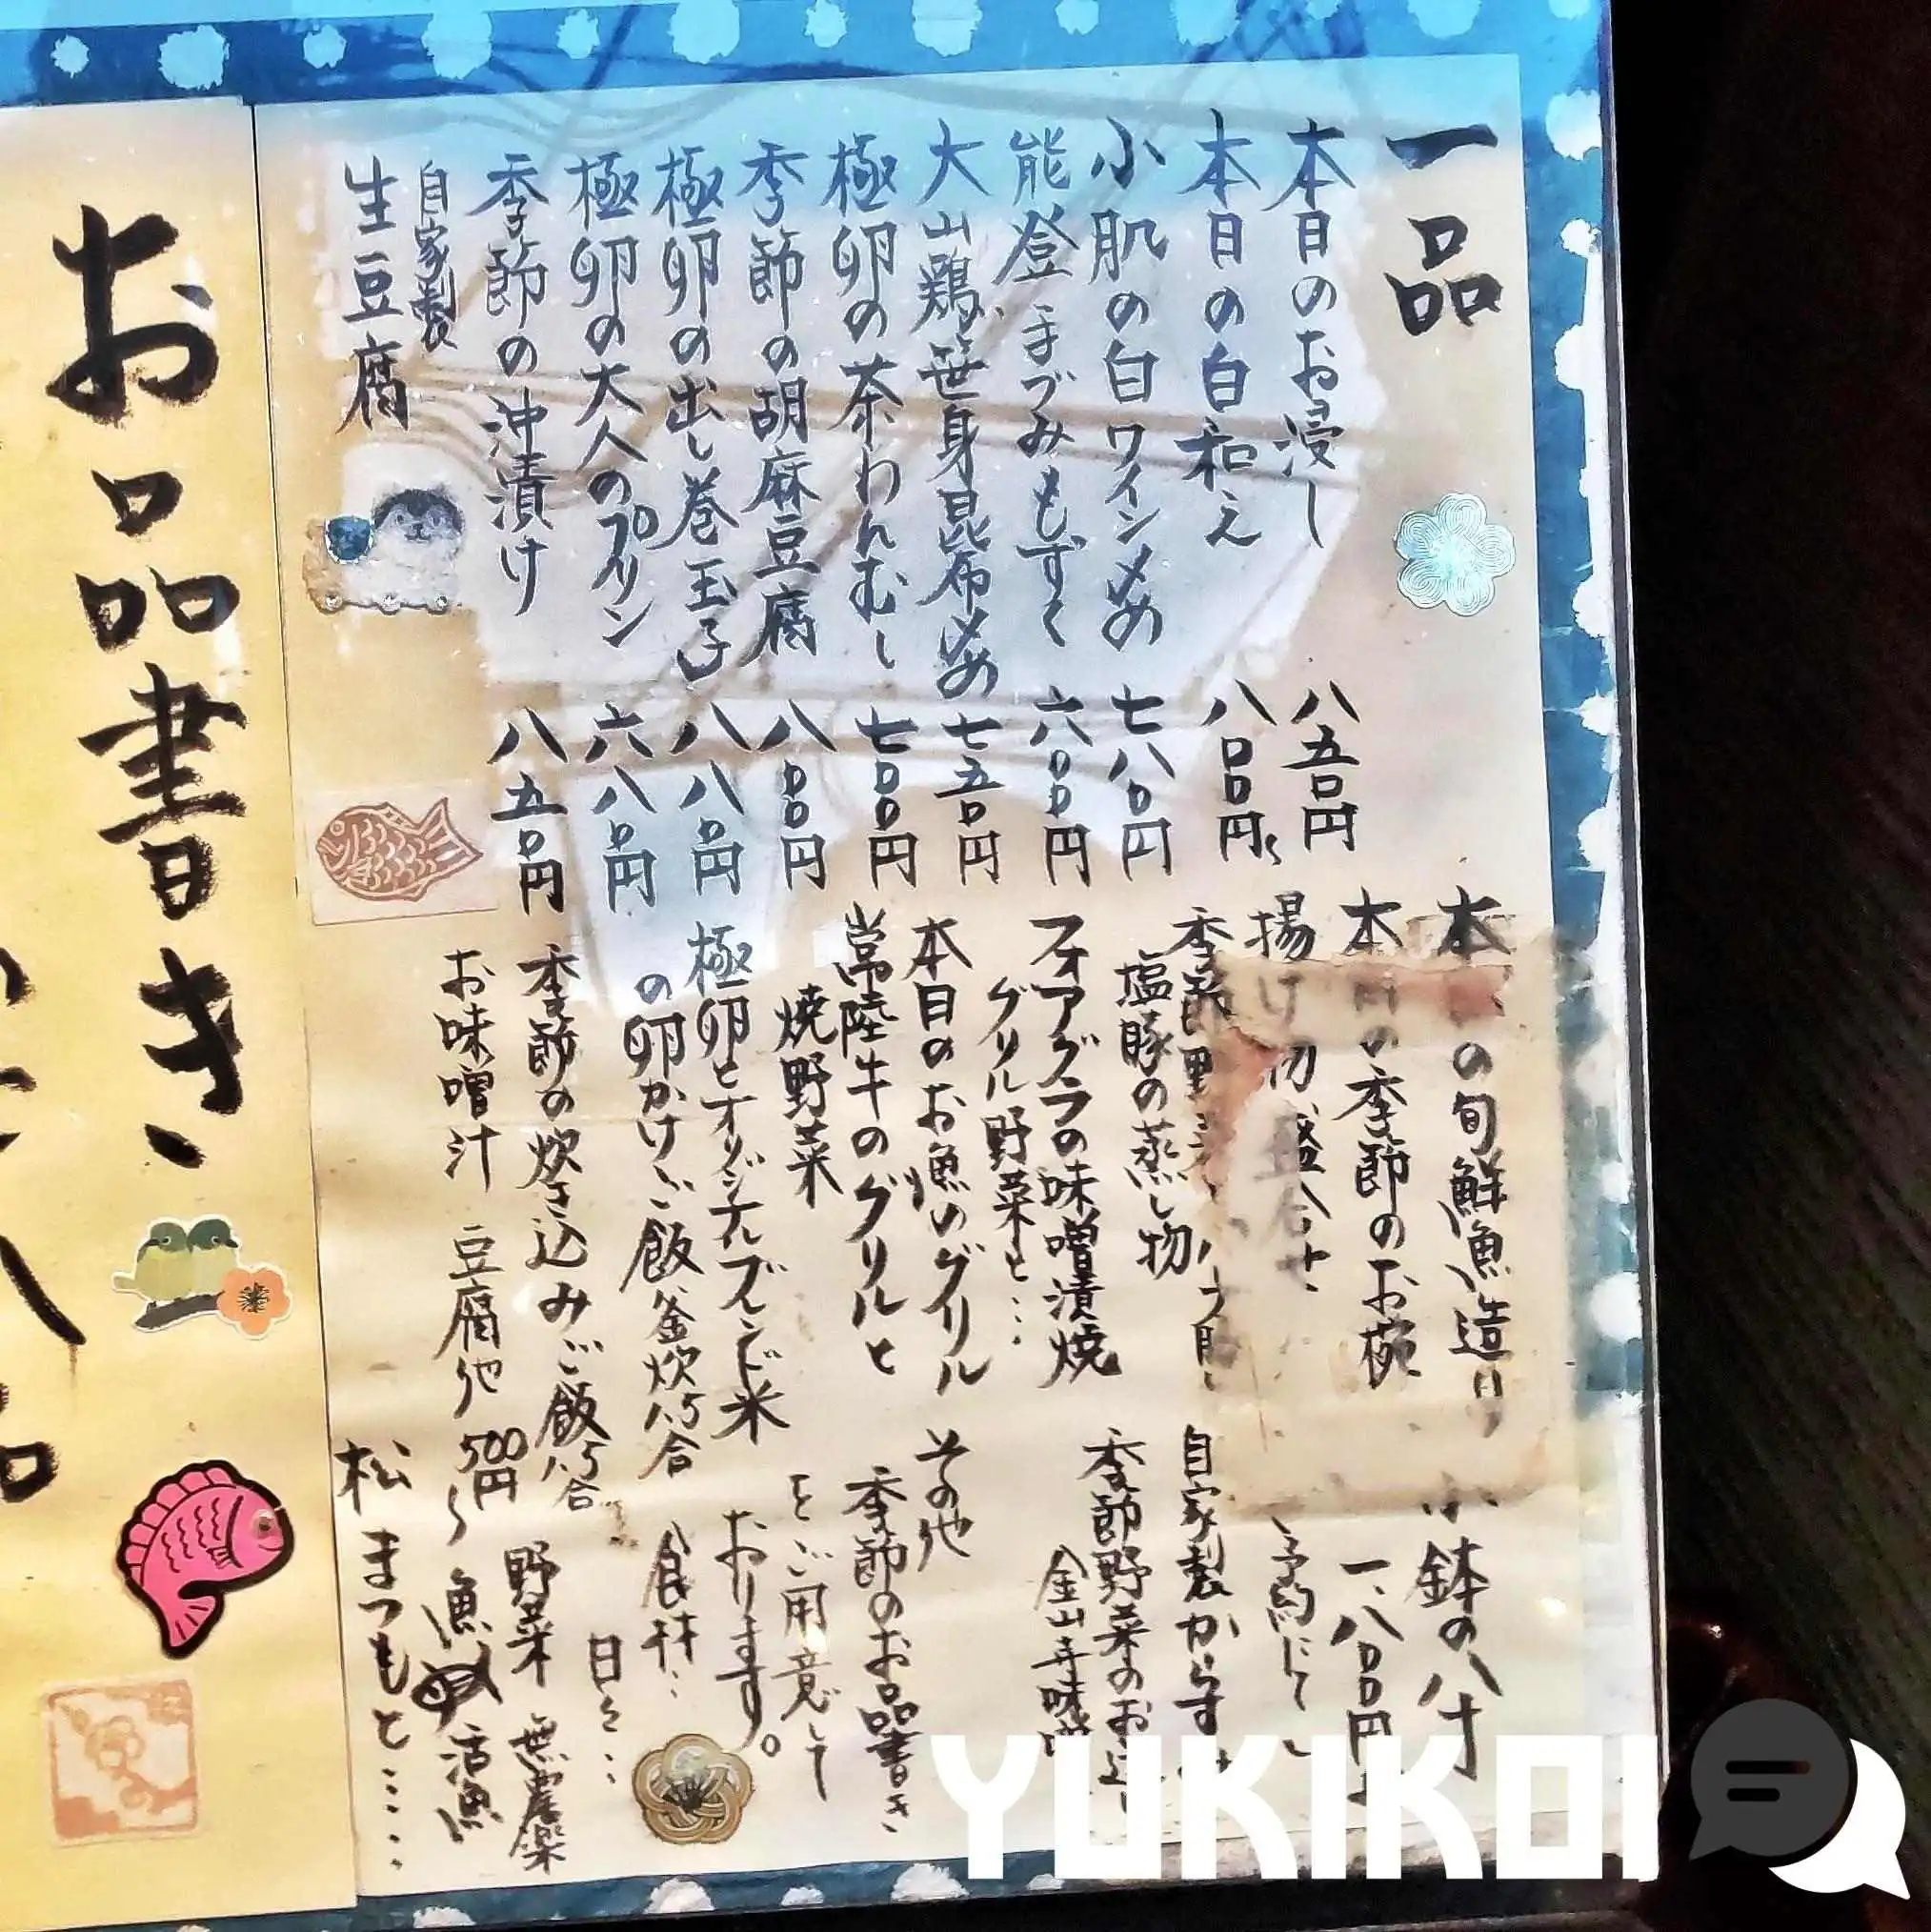 一品
本日のお浸し 八五〇円
本日の白和え 八〇〇円
小肌の白ワイン〆め 七八〇円
能登まづみもずく 六〇〇円
大山鶏笹身昆布〆め 七五〇円
極卵の茶わんむし 七〇〇円
季節の胡麻豆腐 八〇〇円
極卵の出し巻玉子 八八〇円
極卵の大人のプリン 六八〇円
季節の沖漬け 八五〇円
自家製
生豆腐
の旬鮮魚造り
本日の季節のお椀
揚げ物盛合せ
季節野菜
塩豚の蒸し物
フォアグラの味噌漬焼
グリル野菜と…
本日のお魚のグリル
常陸牛のグリルと
焼野菜
極卵とオリジナルブレンド米
の卵かけご飯 釜炊1.5合
季節の炊き込みご飯1.5合
お味噌汁 豆腐他 500円〜
小鉢の八寸
一、八〇〇円
予約にて
自家製からす
季節野菜のお
金山寺味噌
その他
季節のお品書き
をご用意して
おります。
食材…
日々…
野菜 無農薬
魚 活魚
松 まつもと……
お品書き
YUKIKOI